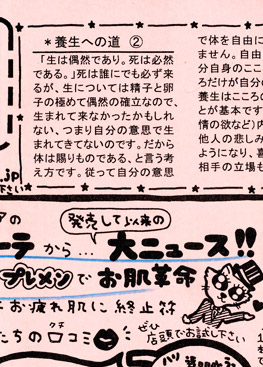 ＊養生への道 ②
「生は偶然であり。死は必然
である。」死は誰にでも必ず来
るが、生については精子と卵
子の極めて偶然の確立なので、
生まれて来なかったかもしれ
ない、つまり自分の意思で生
まれてきてないのです。だから
体は賜りものである、と言う考
え方です。従って自分の意思
で体を自由に
ません。自由
分自身のここ
ろだけが自分の
養生はこころの
とが基本です
情の欲など)内
他人の悲しみ
ようになり、喜
相手の立場も
.jp
下さい
アの
発売して以来の
ーテから…大ニュース!!
プレメンでお肌革命
お疲れ肌に終止符
たちの口コミ
ぜひ
店頭でお試し下さい